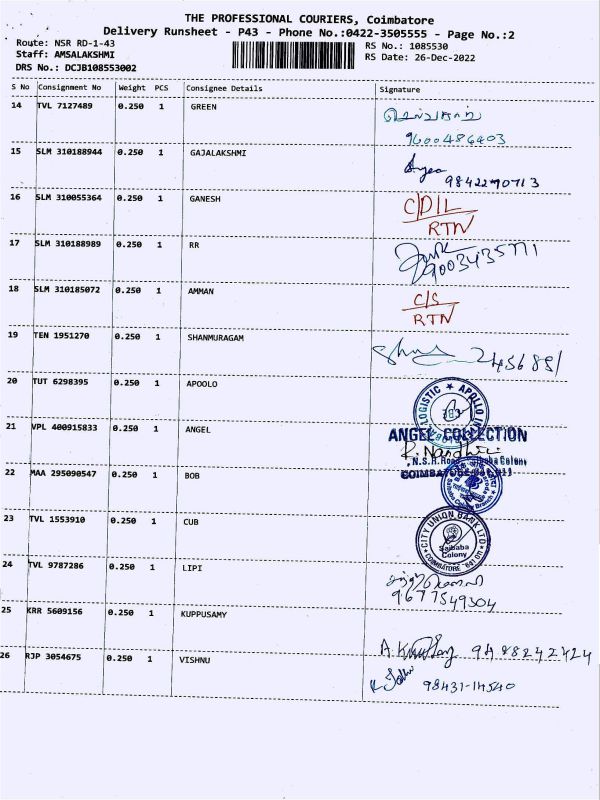 THE PROFESSIONAL COURIERS, Coimbatore
Delivery Runsheet - P43 - Phone No.:0422-3505555 - Page No.:2
Route: NSR RD-1-43
RS No.: 1085530
Staff: AMSALAKSHMI
RS Date: 26-Dec-2022
DRS No.: DCJB108553002
S No Consignment No Weight PCS Consignee Details Signature
14 TVL 7127489 0.250 1 GREEN
9600486403
15 SLM 310188944 0.250 1 GAJALAKSHMI
9842290713
16 SLM 310055364 0.250 1 GANESH C/DIL
RTN
17 SLM 310188989 0.250 1 RR
9003435771
18 SLM 310185072 0.250 1 AMMAN C/S
RTN
19 TEN 1951270 0.250 1 SHANMURAGAM
2456891
20 TUT 6298395 0.250 1 APOOLO
21 VPL 400915833 0.250 1 ANGEL ANGEL COLLECTION
R. Nandhini
22 MAA 295090547 0.250 1 BOB
23 TVL 1553910 0.250 1 CUB
CITY UNION BANK LTD
Saibaba
Colony
COIMBATORE
24 TVL 9787286 0.250 1 LIPI
9677549304
25 KRR 5609156 0.250 1 KUPPUSAMY
9488242424
26 RJP 3054675 0.250 1 VISHNU
98431-14540